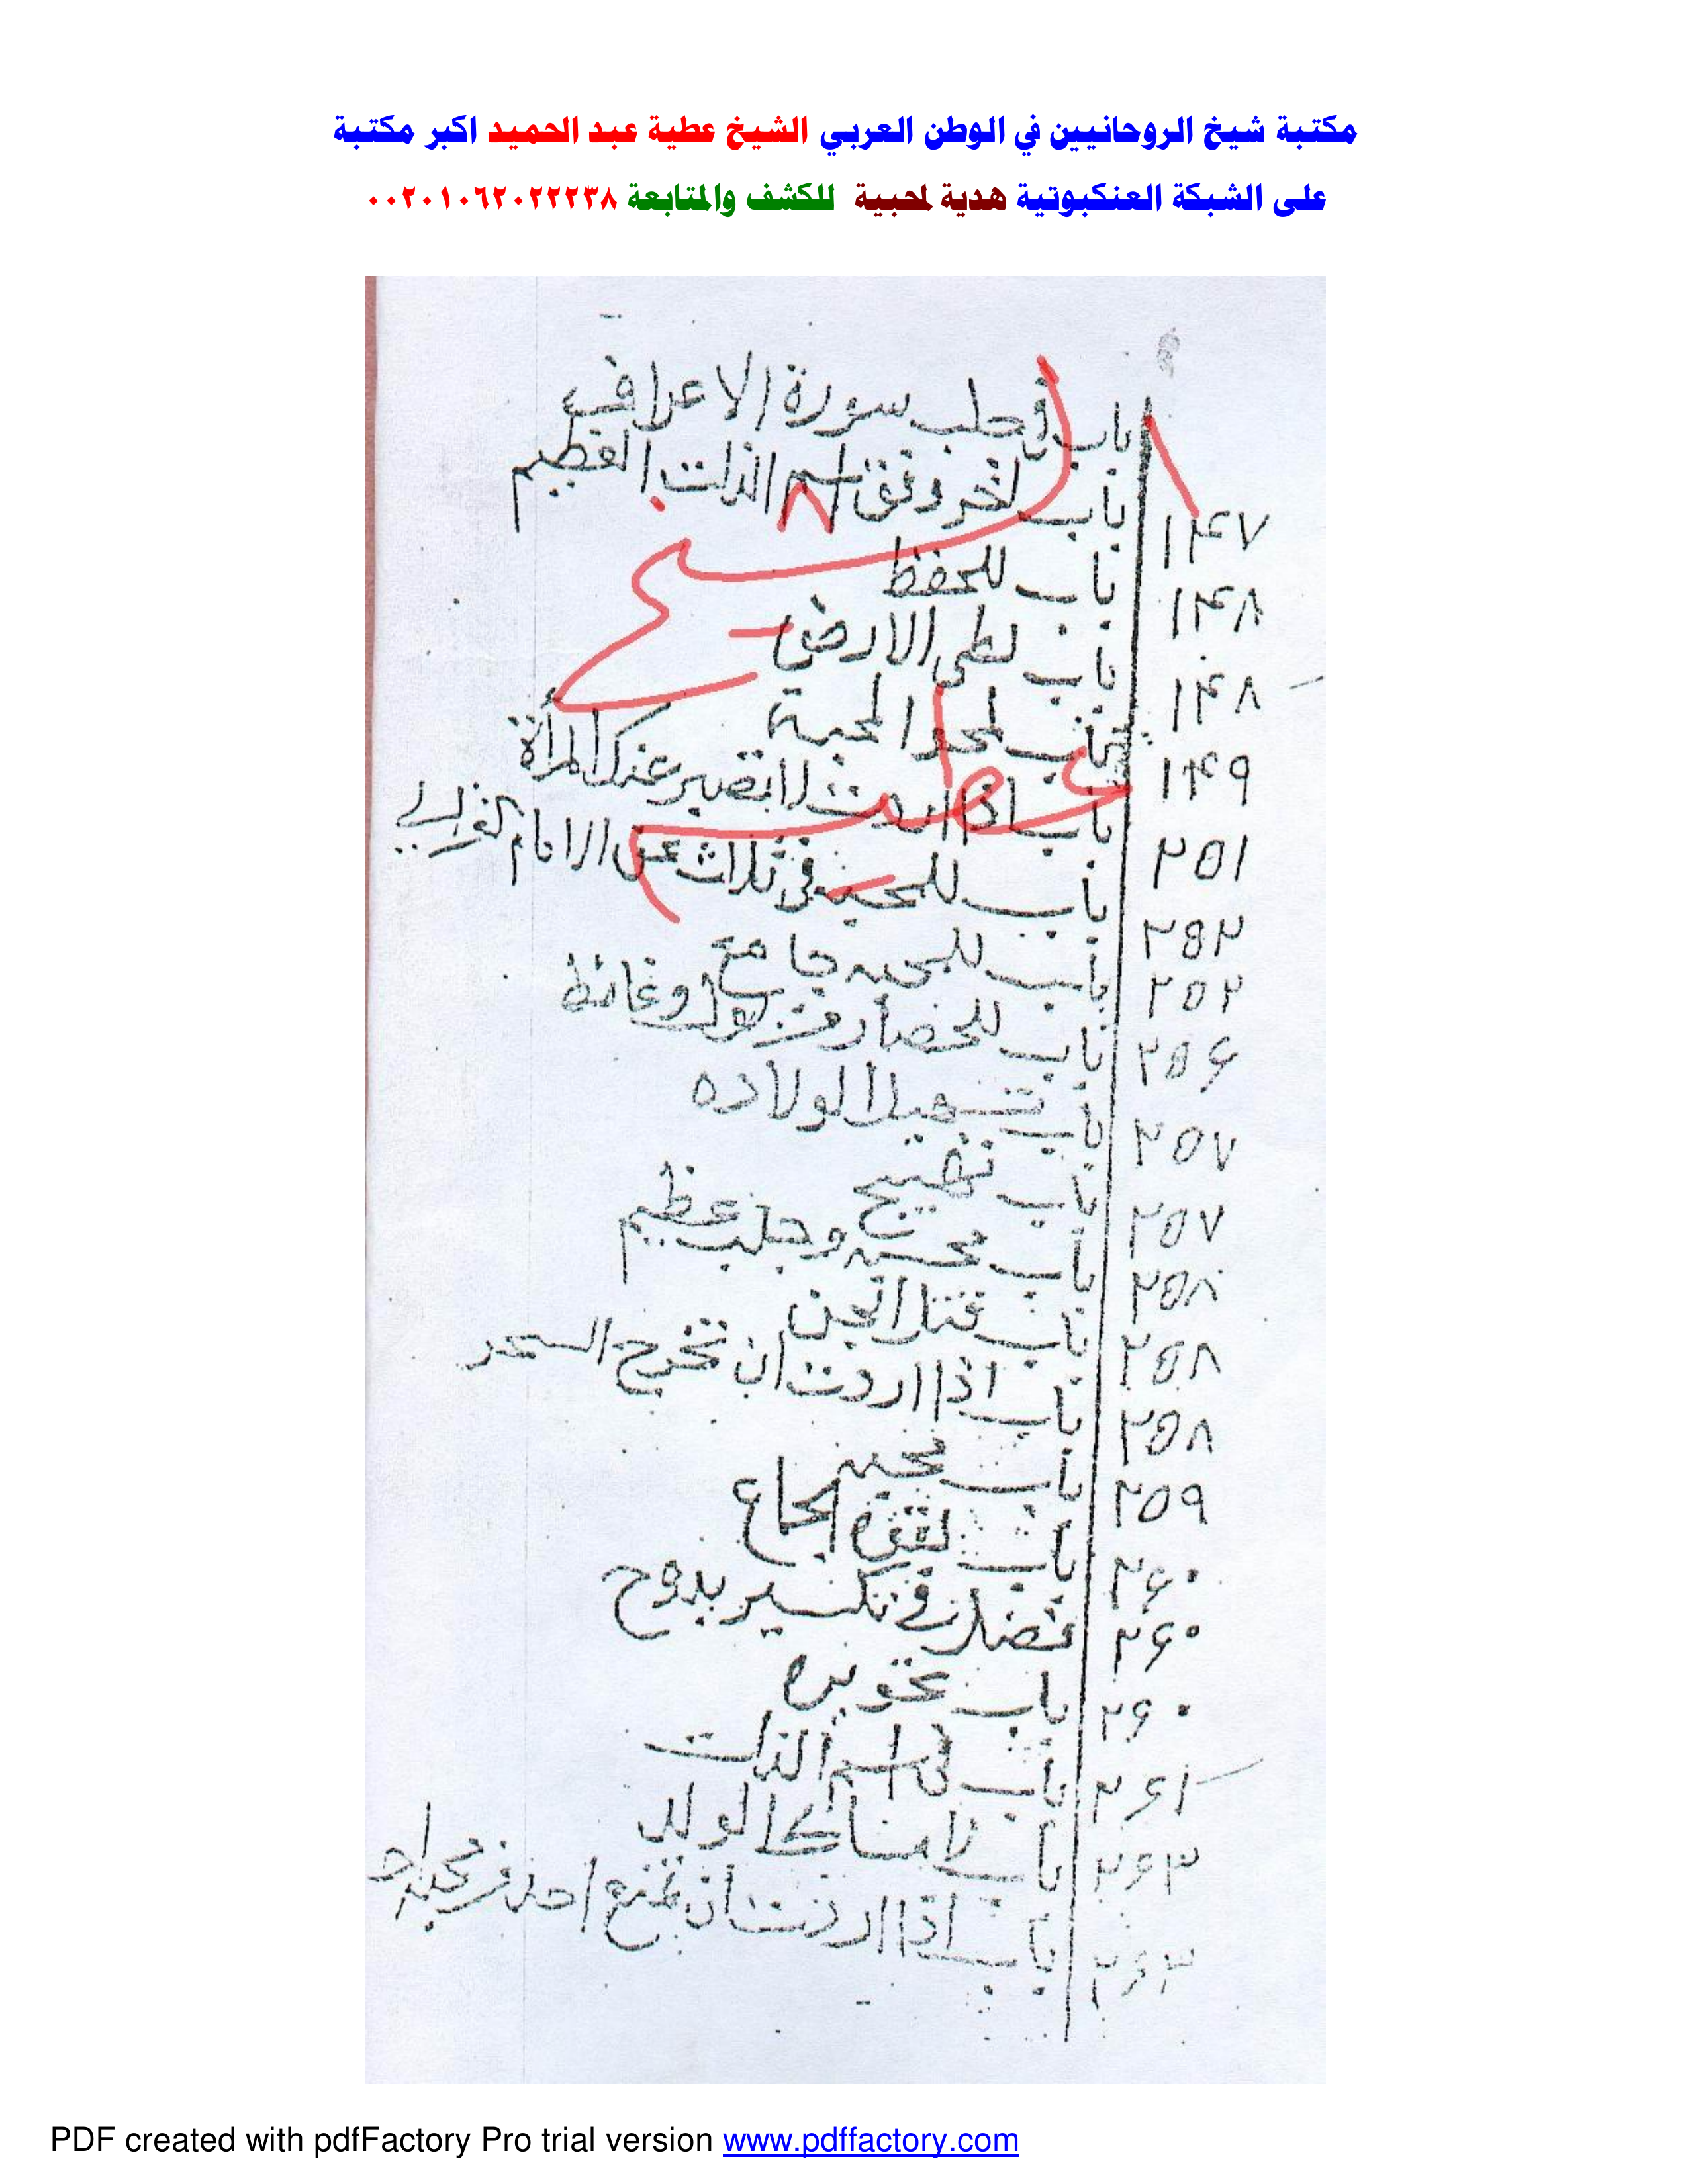 مكتبة شيخ الروحانيين في الوطن العربي الشيخ عطية عبد الحميد اكبر مكتبة
على الشبكة العنكبوتية هدية لمحبية للكشف والمتابعة ٠٠٢٠١٠٦٢٠٢٢٢٣٨
باب في جلب سورة الاعراف
١٤٧ باب لخر وفق اسم الذات العظيم
١٤٨ باب للحفظ
١٤٨ باب لطى الارض
١٤٩ باب لمحو المحبة
٢٥١ باب اذا اردت لا تصير عنك المرأة
٢٥٢ باب للمحبه فى ثلاث عن الامام الغزالي
٢٥٢ باب للمحبه جامع
٢٥۶ باب للحصار من بول وغائط
٢٥٧ باب تسهيل الولاده
٢٥٧ باب تهييج
٢٥٨ باب محبه وجلب عظيم
٢٥٨ باب قتل الجن
٢٥٨ باب اذا اردت ان تخرج السحر
٢٥٩ باب محبه
٢۶٠ باب لقوة الجماع
٢۶٠ فصل فى تكسير بدوح
٢۶٠ باب
٢۶١ باب فى اسم الذات
٢۶٣ باب لامساك الولد
٢۶٣ باب اذا اردت ان تمنع احد من محبة احد
PDF created with pdfFactory Pro trial version www.pdffactory.com